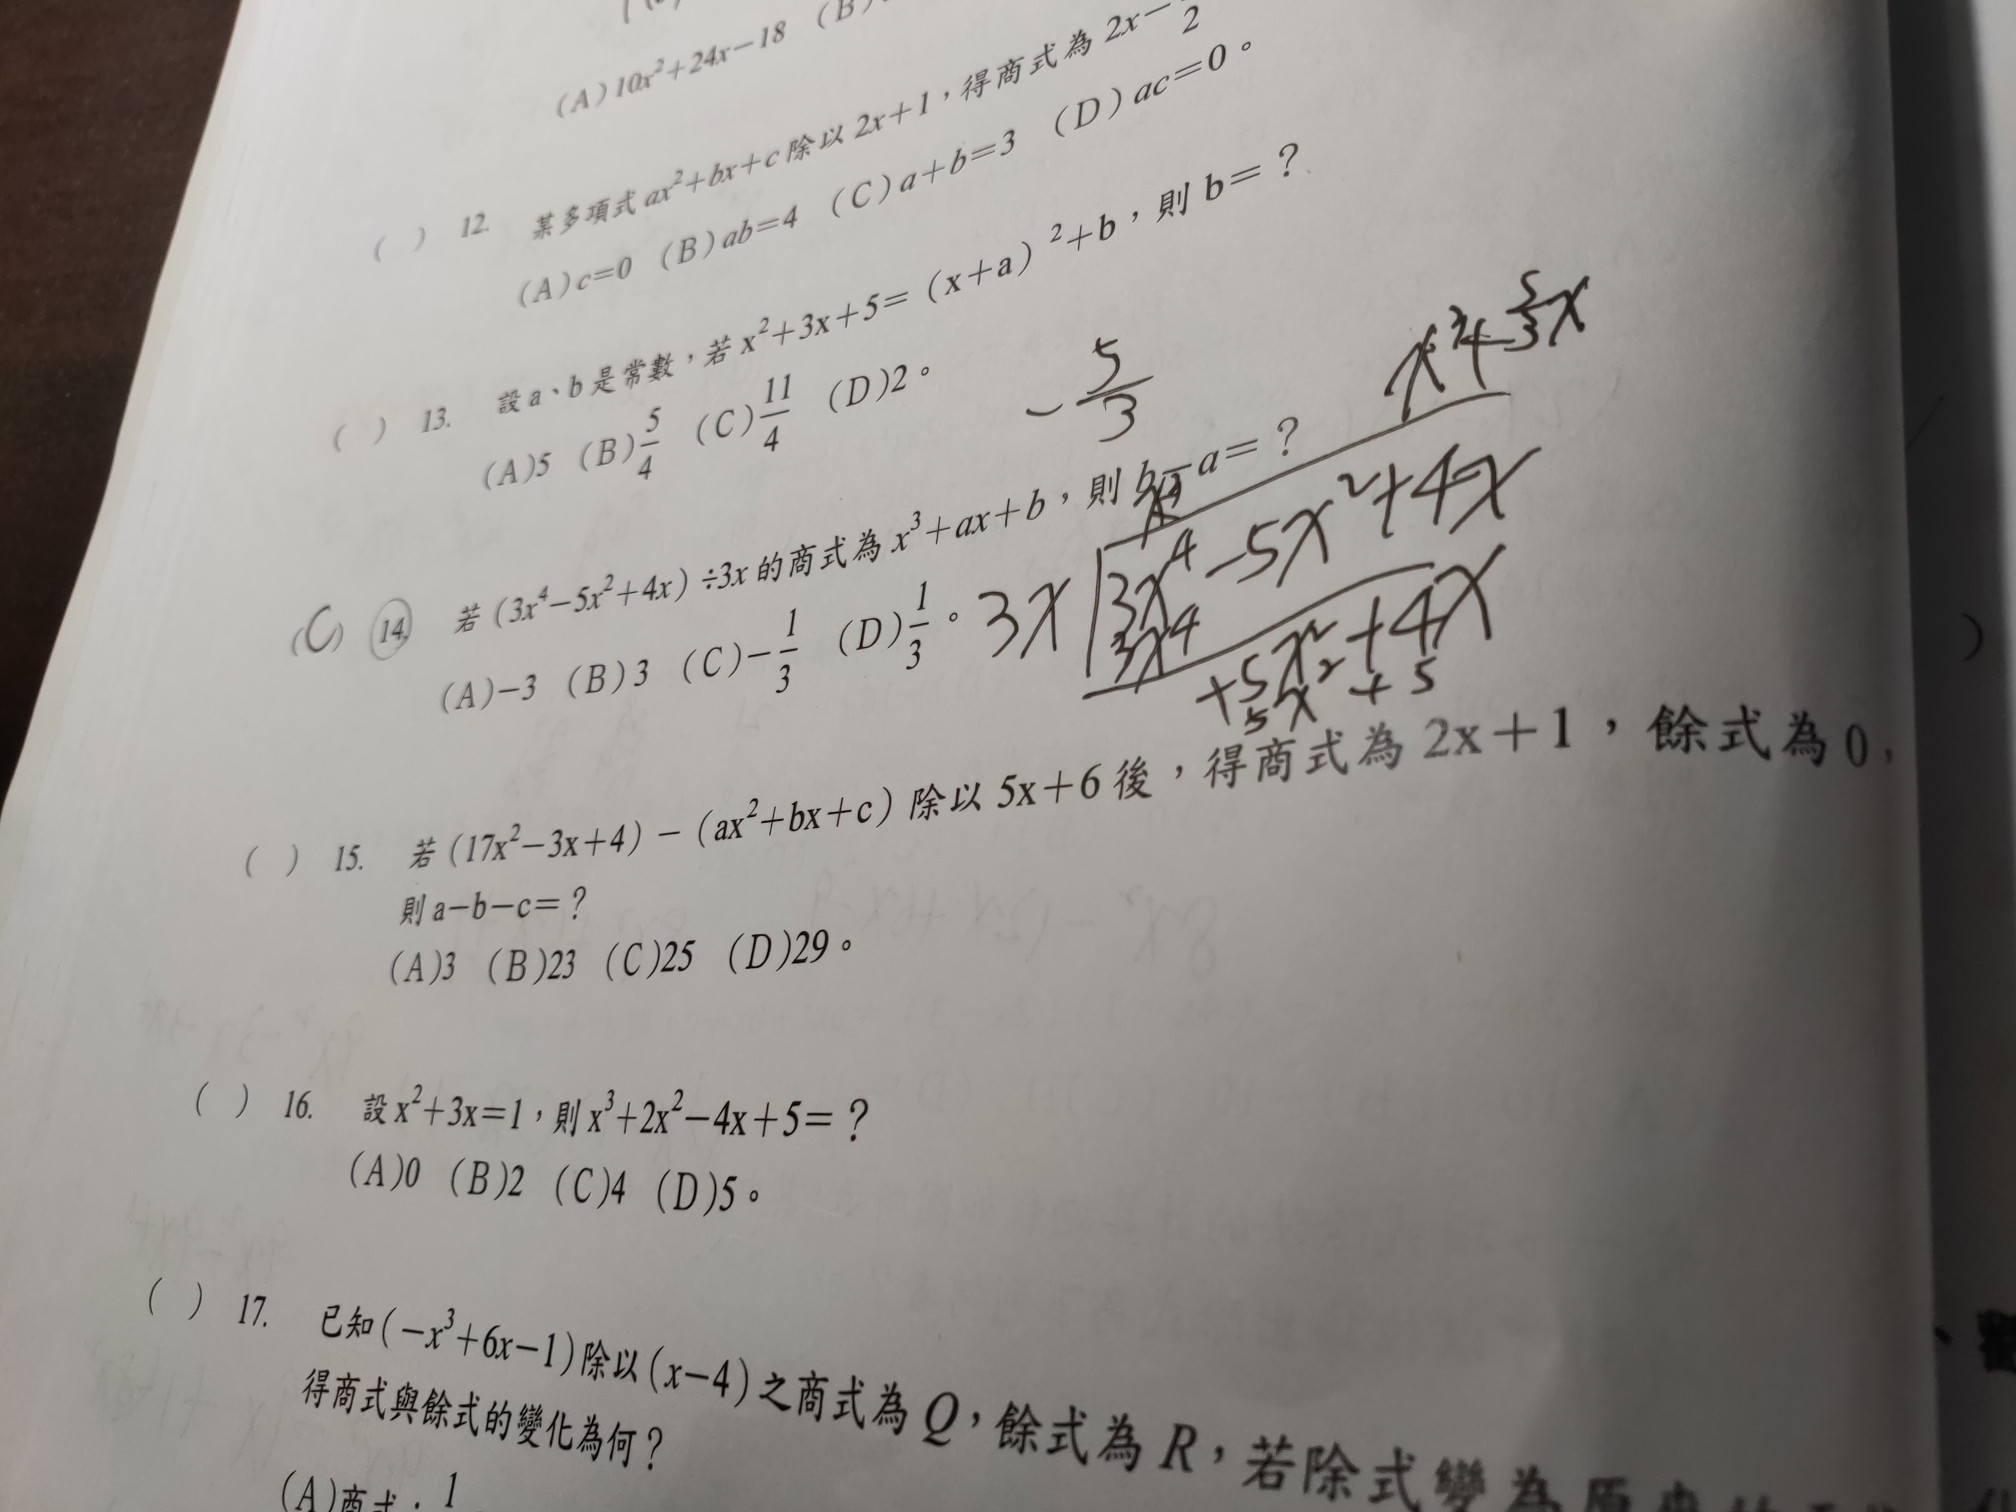 (A)10x²+24x−18 (B)
( ) 12. 某多項式 ax²+bx+c 除以 2x+1，得商式為 2x−
2
(A)c=0 (B)ab=4 (C)a+b=3 (D)ac=0。
( ) 13. 設 a、b 是常數，若 x²+3x+5=（x+a）²+b，則 b=？
(A)5 (B)5/4 (C)11/4 (D)2。
−5/3
x²+5/3x
(C) 14. 若（3x⁴−5x²+4x）÷3x 的商式為 x³+ax+b，則 b−a=？
(A)−3 (B)3 (C)−1/3 (D)1/3。
3x 3x⁴−5x²+4x
3x⁴
+5x²+4x
5x²+5
( ) 15. 若（17x²−3x+4）−（ax²+bx+c）除以 5x+6 後，得商式為 2x+1，餘式為 0，
則 a−b−c=？
(A)3 (B)23 (C)25 (D)29。
( ) 16. 設 x²+3x=1，則 x³+2x²−4x+5=？
(A)0 (B)2 (C)4 (D)5。
( ) 17. 已知(−x³+6x−1)除以(x−4)之商式為 Q，餘式為 R，若除式變為原來的
得商式與餘式的變化為何？
(A)商式：1